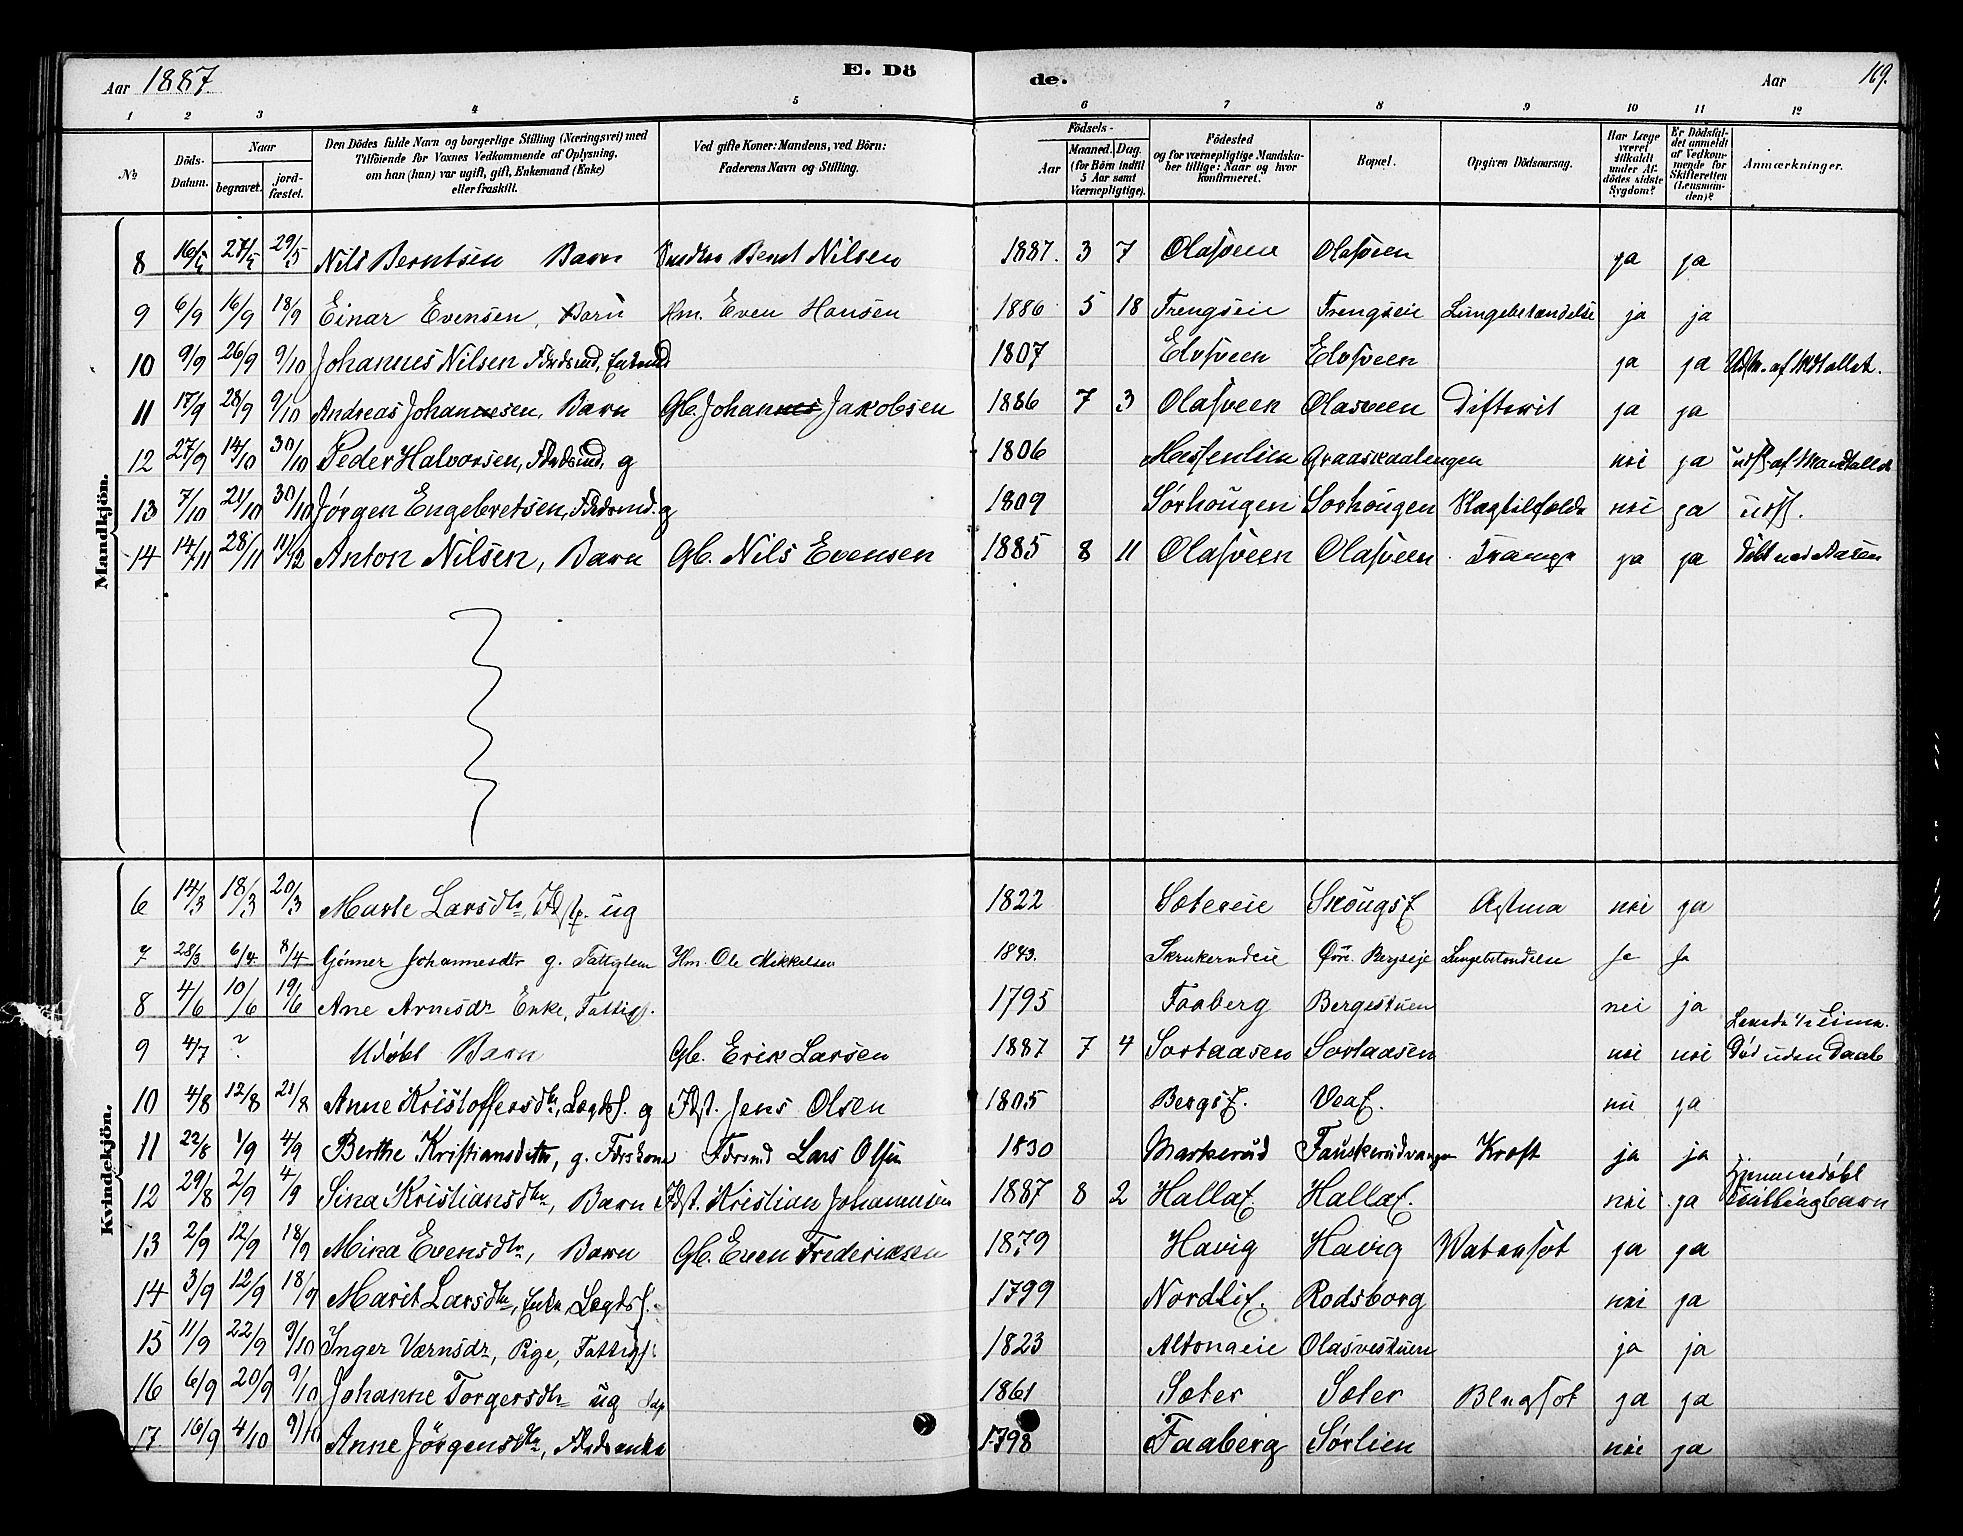 Aar 1887. E. Dö de. Aar 169.
1 2 3 4 5 6 7 8 9 10 11 12
№ Döds-Datum. Naar begravet. jord-fæstet. Den Dödes fulde Navn og borgerlige Stilling (Næringsvei) med Tilföiende for Voxnes Vedkommende af Oplysning, om han (hun) var ugift, gift, Enkemand (Enke) eller fraskilt. Ved gifte Koner: Mandens, ved Börn: Faderens Navn og Stilling. Födsels- Aar Maaned. Dag. (for Börn indtil 5 Aar samt Værnepligtige). Födested og for værnepligtige Mandskaber tillige: Naar og hvor konfirmeret. Bopæl. Opgiven Dödsaarsag. Har Læge været tilkaldt under Afdödes sidste Sygdom? Er Dödsfaldet anmeldt af Vedkommende for Skifteretten (Lensmanden)? Anmærkninger.
Mandkjön.
8 27/5 29/5 Nils Berntsen Barn Bernt Nilsen 1887. 3 7 Olasveen Olasveen ja ja
9 6/9 16/9 18/9 Einar Evensen, Barn Hm. Even Hansen 1886 5 18 Trengseie Trengseie Lungebetændelse ja ja
10 9/9 26/9 9/10 Johannes Nilsen 1807 Elvsveen Elvsveen ja ja
11 17/9 28/9 9/10 Andreas Johannesen, Barn Gb. Johannes Jakobsen 1886 7 3 Olasveen Olasveen Difterit ja ja
12 27/9 14/10 30/10 Peder Halvorsen, g 1806 Graaskaalengen nei ja
13 7/10 21/10 30/10 Jørgen Engebretsen, g 1809 Sørhougen Sorhougen Slagtilfælde nei ja
14 14/11 28/11 11/12 Anton Nilsen, Barn Gb. Nils Evensen 1885 8 11 Olasveen Olasveen ja ja
Kvindekjön.
6 14/3 18/3 20/3 Marte Larsdtr, ug 1822 Sætereie Astma nei ja
7 28/3 6/4 8/4 Gönner Johannesdtr g. Fattiglem Hm. Ole Mikkelsen 1843. Skrukerudeie Øvre Bergseje Lungebetændelse Ja Ja
8 4/6 10/6 19/6 Ane Arnesdr Enke, Fattigl. 1795 Faaberg Bergestuen nei ja
9 4/7 ? Udøbt Barn Gb. Erik Larsen 1887 7 4 Sortaasen Sortaasen nei nei Død uden Daab
10 4/8 12/8 21/8 Anne Kristoffersdtr, Lægdsl. g Jens Olsen 1805 nei ja
11 22/8 1/9 4/9 Berthe Kristiansdatter, g. Lars Olsen 1830 Markerud Kræft ja ja
12 29/8 2/9 4/9 Sina Kristiansdtr, Barn Kristian Johannesen 1887 8 2 nei ja Hjemmedøbt Tvillingbarn
13 2/9 12/9 18/9 Mina Evensdtr, Barn Gb. Even Frederiksen 1879 Havig Havig Vatersot ja ja
14 3/9 12/9 18/9 Marit Larsdtr, Enke, Lægdsl. 1799 Rodsborg nei ja
15 11/9 22/9 9/10 Inger Værnsdr, Pige, Fattigl. 1823 Altonaeie Olasvestuen ja ja
16 6/9 20/9 9/10 Johanne Torgersdtr ug 1861 Sæter Sæter Blegsot ja ja
17. 16/9 4/10 9/10 Anne Jörgensdtr, 1798 Faaberg Sørlien nei ja